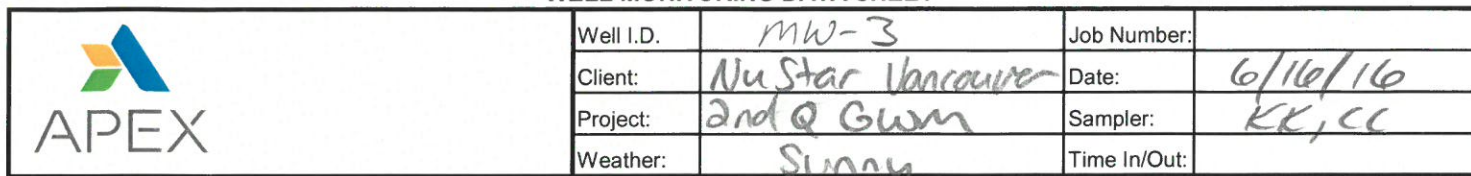 Well I.D. MW-3 Job Number:
APEX Client: NuStar Vancouver Date: 6/16/16
Project: 2nd Q GWM Sampler: KK, CC
Weather: Sunny Time In/Out: